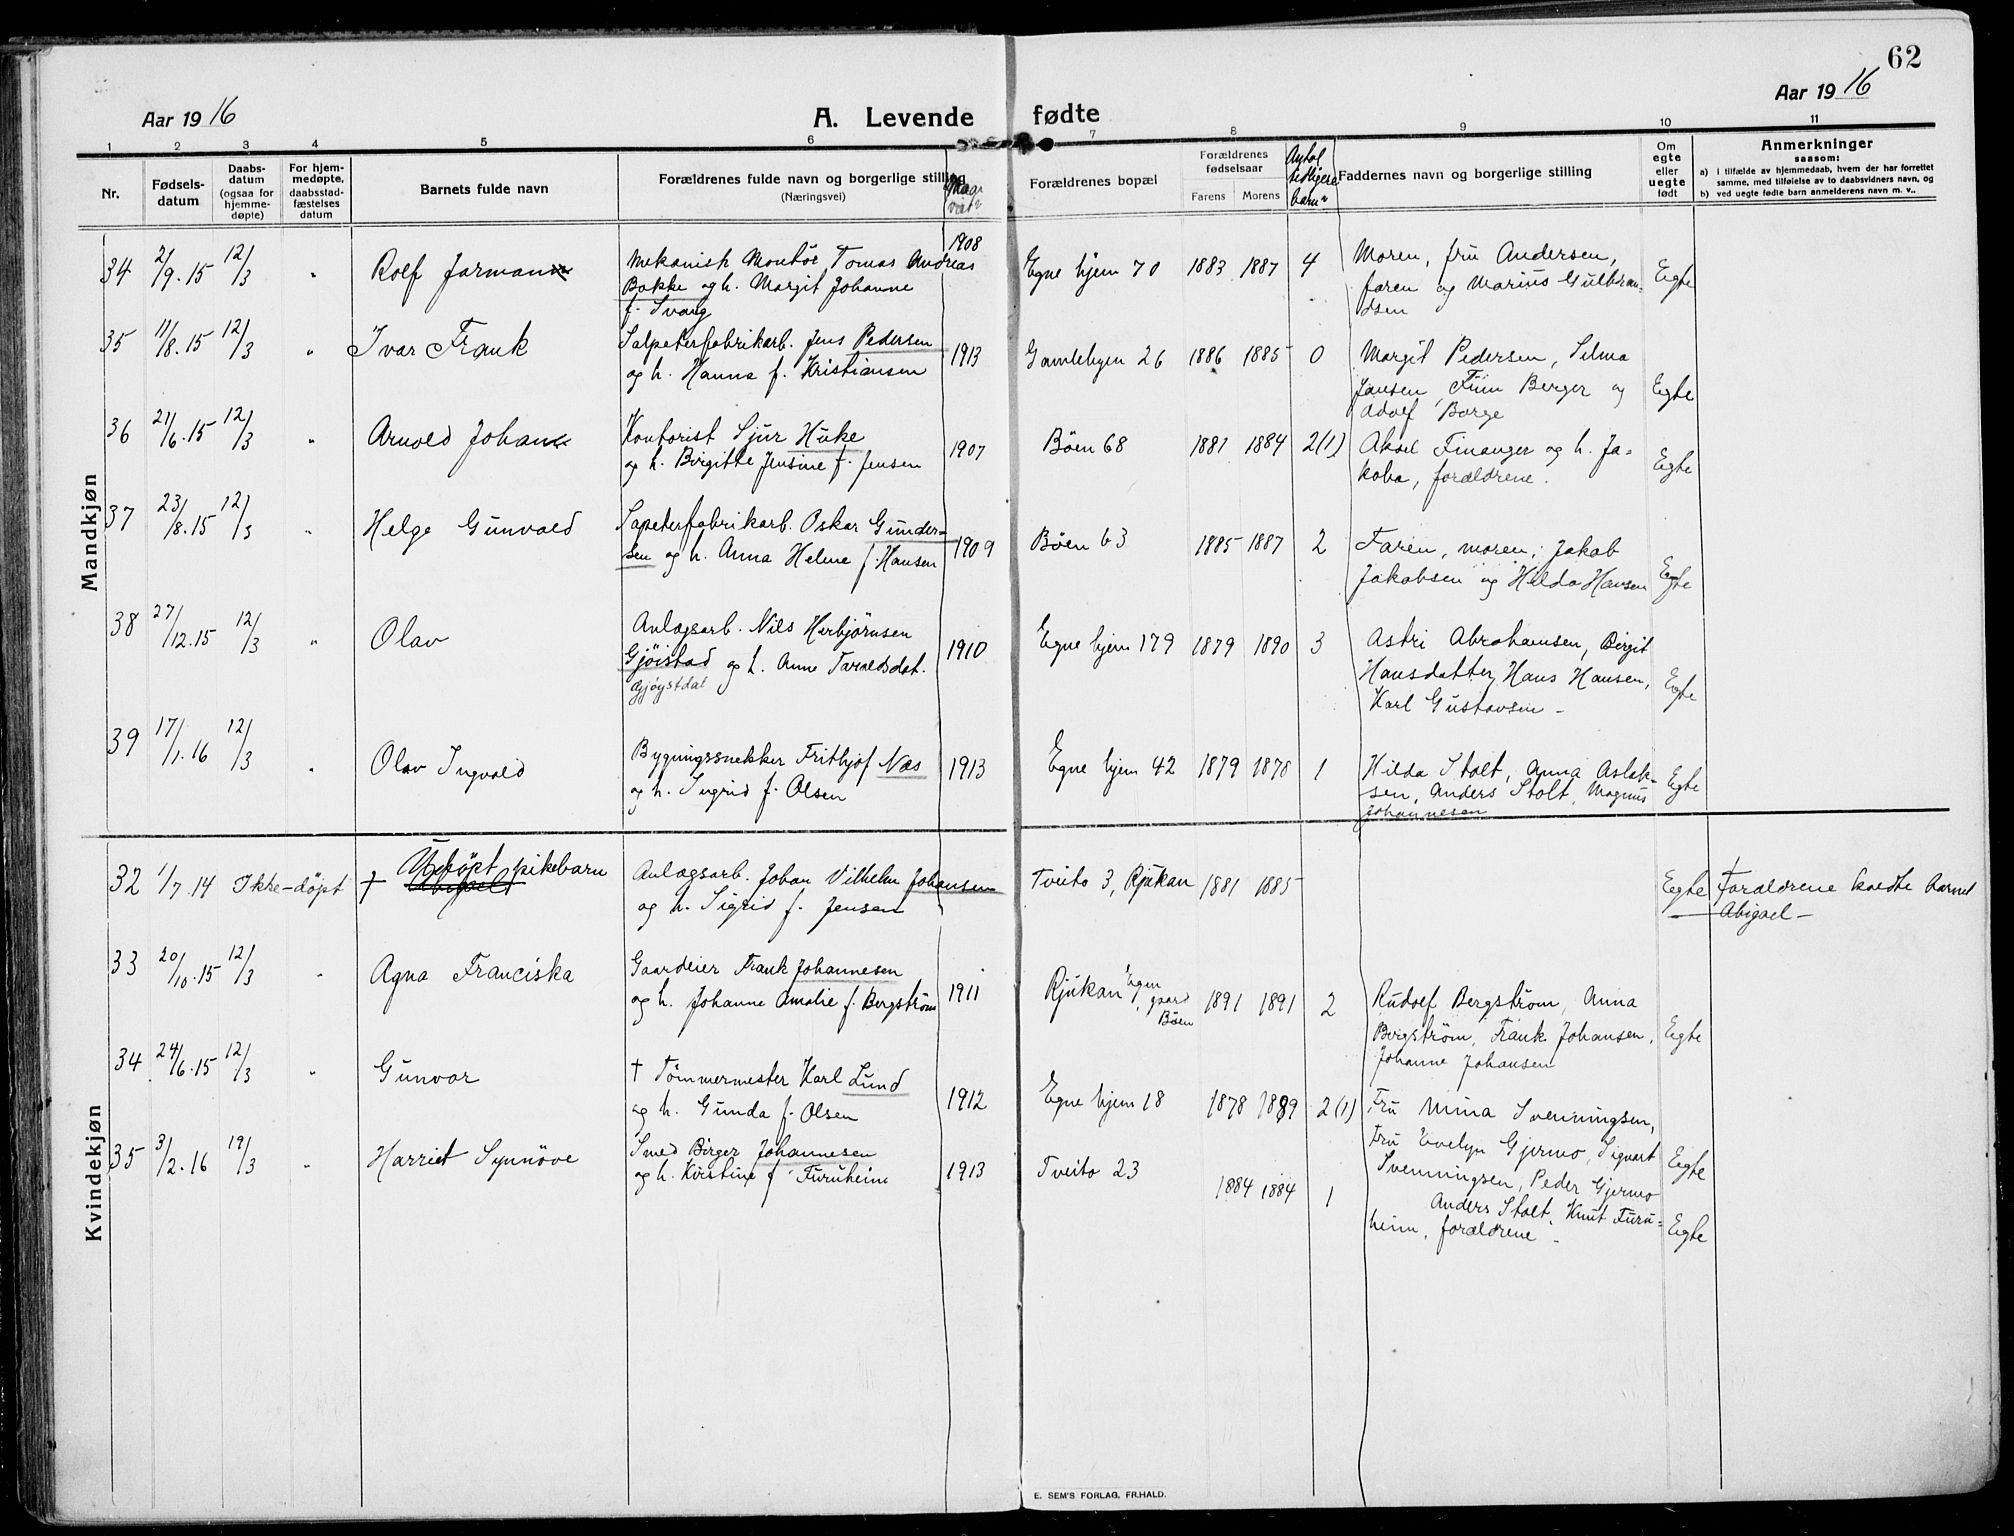 62
Aar 1916
A. Levende fødte
Aar 1916
1 2 3 4 5 6 7 8 9 10 11
Nr.
Fødsels-
datum
Daabs-
datum
(ogsaa for
hjemme-
døpte)
For hjem-
medøpte,
daabsstad-
fæstelses
datum
Barnets fulde navn
Forældrenes fulde navn og borgerlige stilling
(Næringsvei)
Naar
viet
Forældrenes bopæl
Forældrenes
fødselsaar
Farens Morens
Antal
tidligere
barn
Faddernes navn og borgerlige stilling
Om
egte
eller
uegte
født
Anmerkninger
saasom:
a) i tilfælde av hjemmedaab, hvem der har forrettet
samme, med tilføielse av to daabsvidners navn, og
b) ved uegte fødte barn anmelderens navn m. v..
Mandkjøn
34 2/9.15 12/3 " Rolf Jarmann
Mekanisk Montør Tomas Andreas
Bakke og h. Margit Johanne
f. Svang
1908 Egne hjem 70 1883 1887 4
Moren, fru Andersen,
faren og Marius Gulbran-
dsen
Egte
35 11/8.15 12/3 " Ivar Frank
Salpeterfabrikarb. Jens Pedersen
og h. Hanna f. Kristiansen
1913 Gamlebyen 26 1886 1885 0
Margit Pedersen, Selma
Jansen, Finn Berger og
Adolf Borge
Egte
36 21/6.15 12/3 " Arnold Johan
Kontorist Sjur Huke
og h. Birgitte Jensine f. Jensen
1907 Bøen 68 1881 1884 2(1)
Aksel Finanger og h. Ja-
koba, forældrene.
Egte
37 23/8.15 12/3 " Helge Gunvald
Sapeterfabrikarb. Oskar Gunder-
sen og h. Anna Helene f. Hansen
1909 Bøen 63 1885 1887 2
Faren, moren, Jakob
Jakobsen og Hilda Hansen
Egte
38 27/12.15 12/3 " Olav
Anlægsarb. Nils Herbjørnsen
Gjøistad og h. Anne Tarældsdat.
Gjøystdal
1910 Egne hjem 179 1879 1890 3
Astri Abrahamsen, Birgit
Hansdatter, Hans Hansen,
Karl Gustavsen -
Egte
39 17/1.16 12/3 " Olav Ingvald
Bygningssnekker Fritbjof Næs
og h. Ingrid f. Olsen
1913 Egne hjem 42 1879 1878 1
Hilda Stolt, Anna Aslak-
sen, Anders Stolt, Magnus
Johannesen
Egte
Kvindekjøn
32 1/7.14 Ikke-döpt † Udöpt pikebarn
Abigael
Anlægsarb. Johan Vilhelm Johansen
og h. Sigrid f. Jensen
Tveito 3, Rjukan 1881 1885
Egte
† Forældrene kaldte barnet
Abigael -
33 20/10.15 12/3 " Agna Franciska
Gaardeier Frank Johannesen
og h. Johanne Amalie f. Bergström
1911 Rjukan Egen
gaard
Bøen
1891 1891 2
Rudolf Bergström, Anna
Bergström, Frank Johansen,
Johanne Johansen
Egte
34 24/6.15 12/3 " Gunvor
† Tömmermester Karl Lund
og h. Gunda f. Olsen
1912 Egne hjem 18 1878 1889 2(1)
Fru Mina Svenningsen,
Fru Evelyn Gjermo, Sigvart
Svenningsen, Peder Gjermo
Egte
35 3/2.16 19/3 " Harriet Synnöve
Smed Birger Johannesen
og h. Kristine f. Furuheim
1913 Tveito 23 1884 1884 1
Anders Stolt, Knut Furu-
heim, forældrene -
Egte
E. SEM'S FORLAG, FR.HALD.